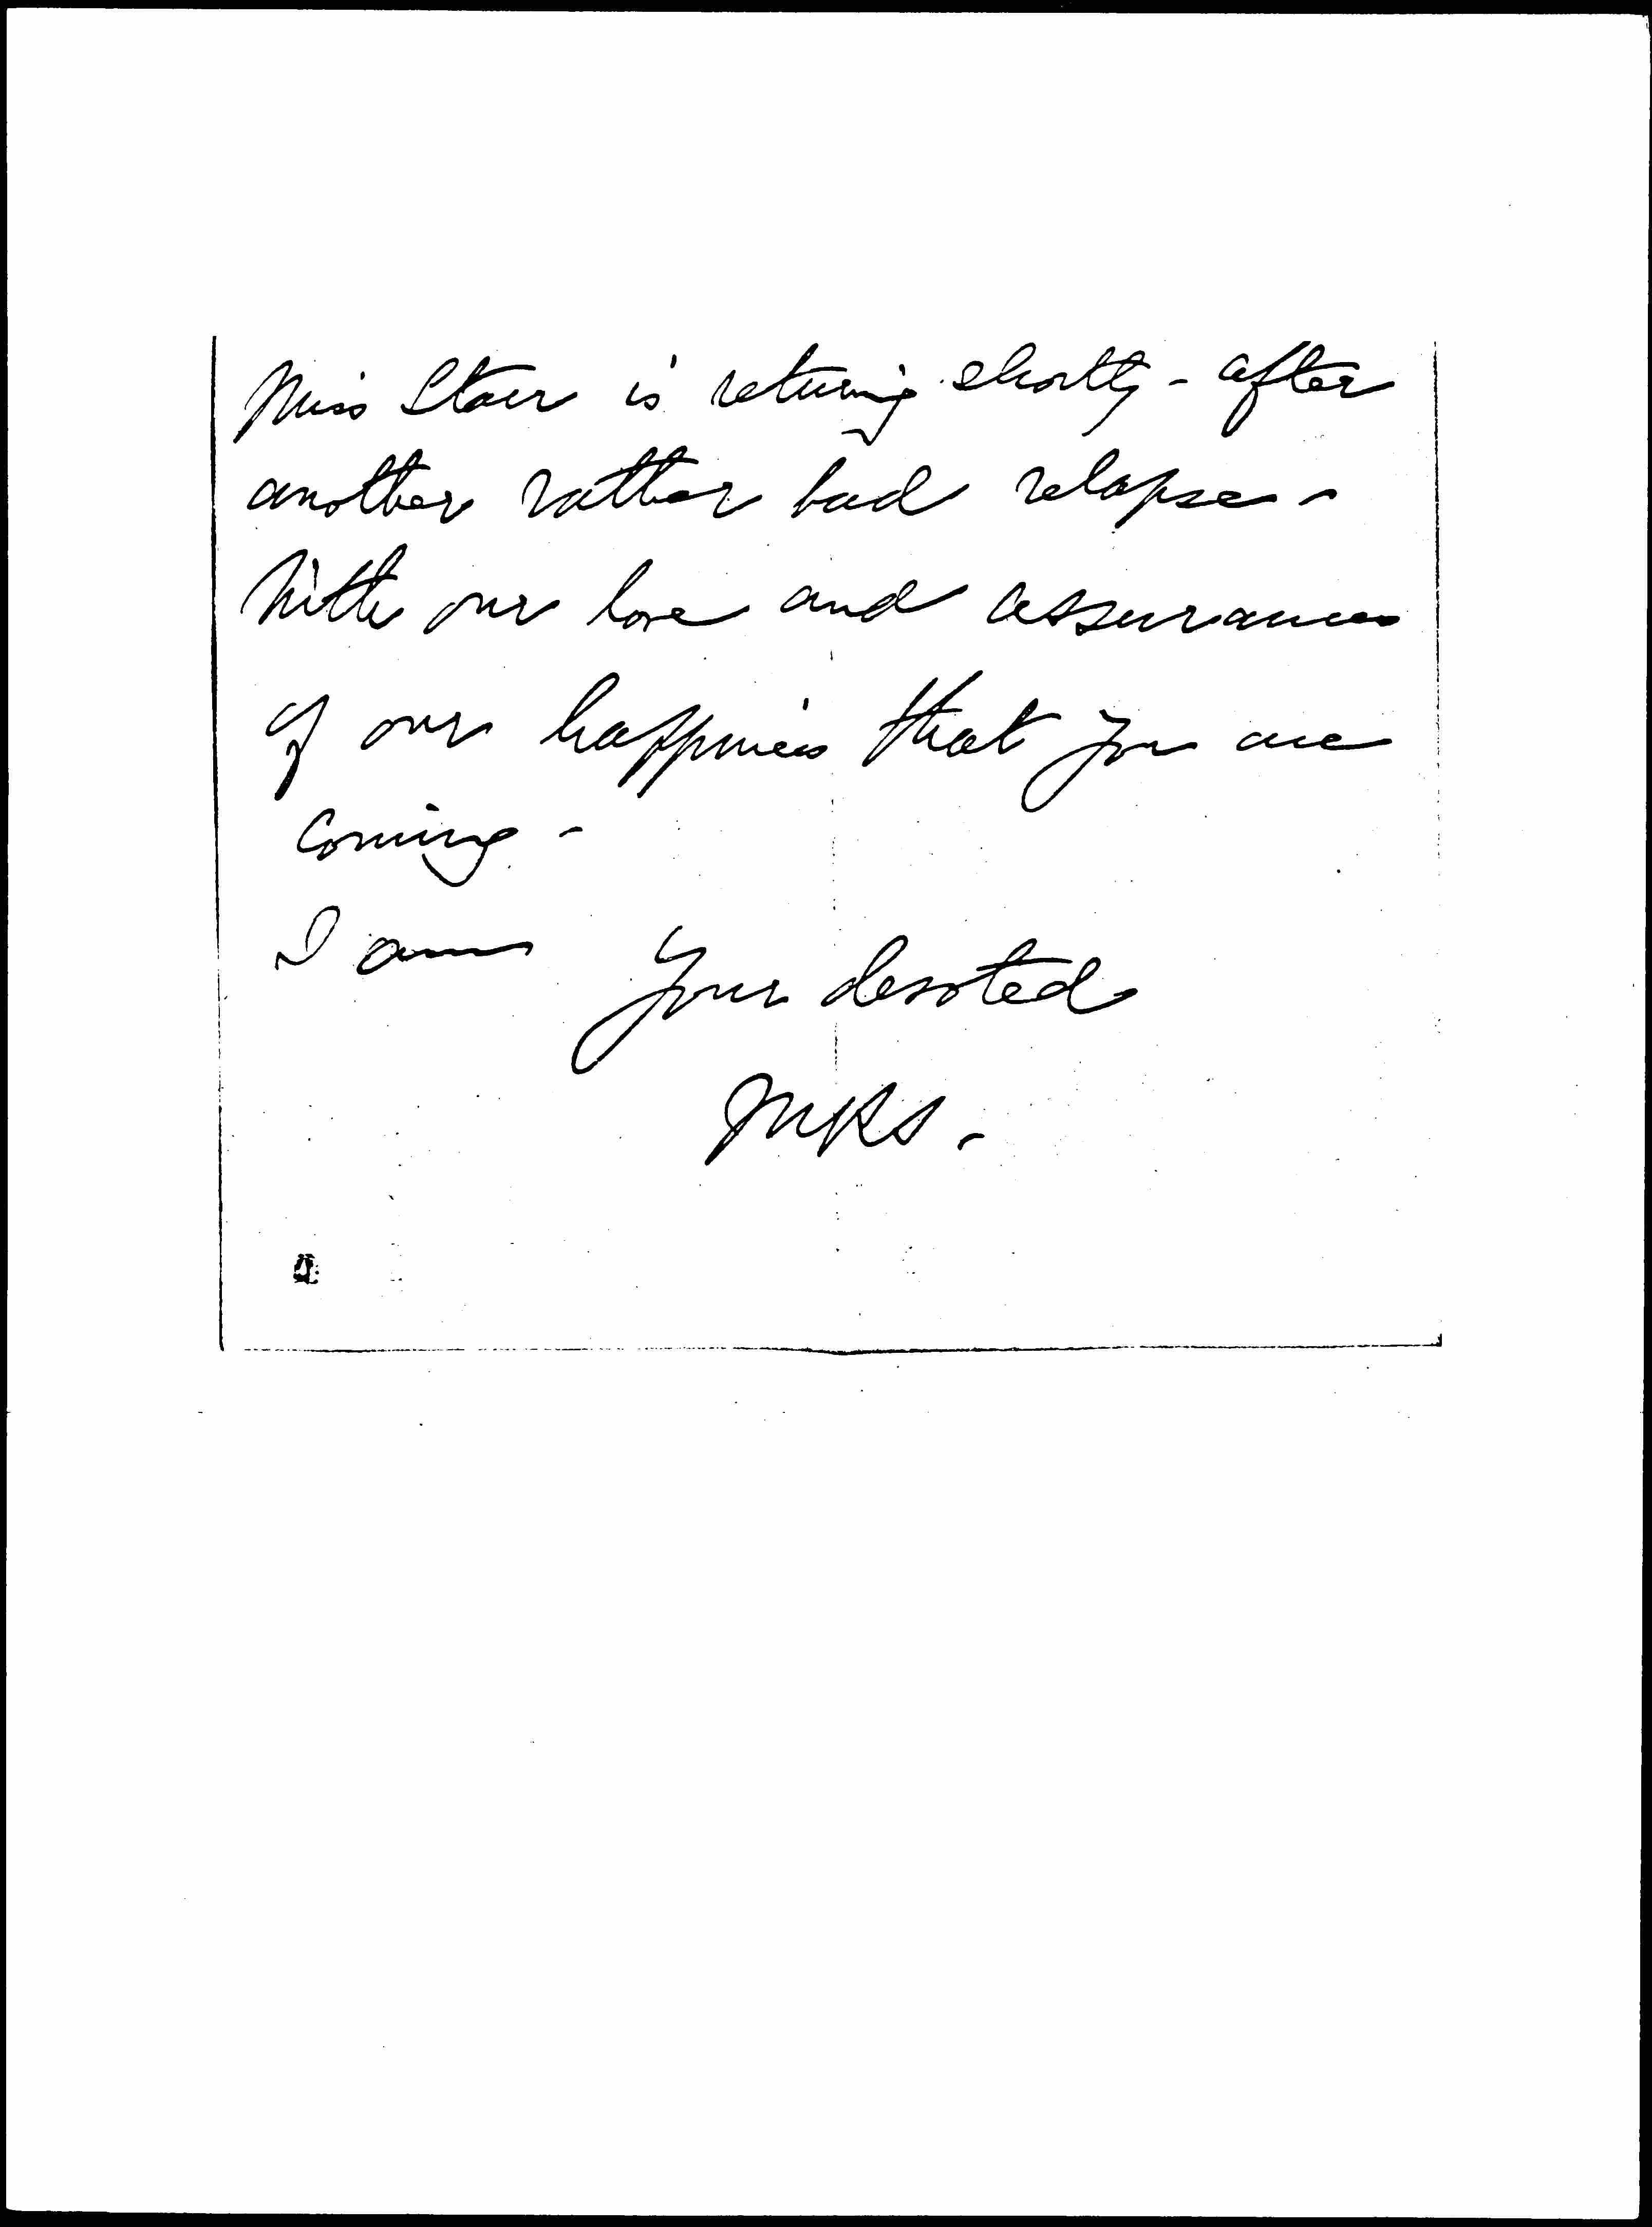 Miss Starr is returning shortly - after
another rather bad relapse -
With our love and assurances
of our happiness that you are
coming -
I am
Your devoted
MRS.